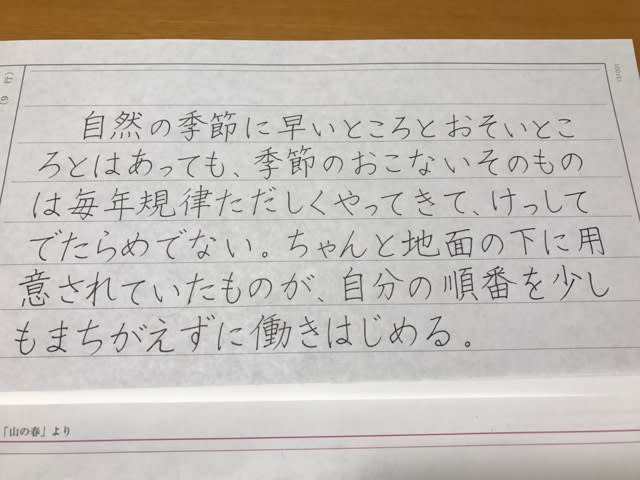 (9 行)
自然の季節に早いところとおそいとこ
ろとはあっても、季節のおこないそのもの
は毎年規律ただしくやってきて、けっして
でたらめでない。ちゃんと地面の下に用
意されていたものが、自分の順番を少し
もまちがえずに働きはじめる。
「山の春」より